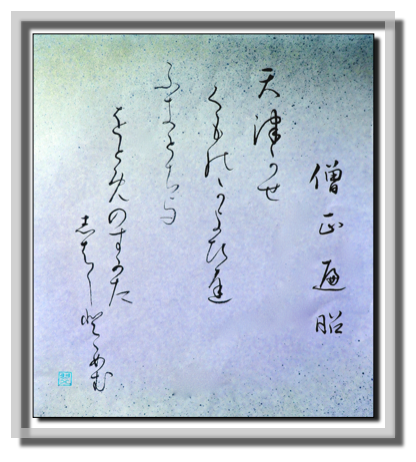 僧正遍昭
天津かせ
くものかよひ
ふきとちよ
をとめのすかた
志はしとゝめむ